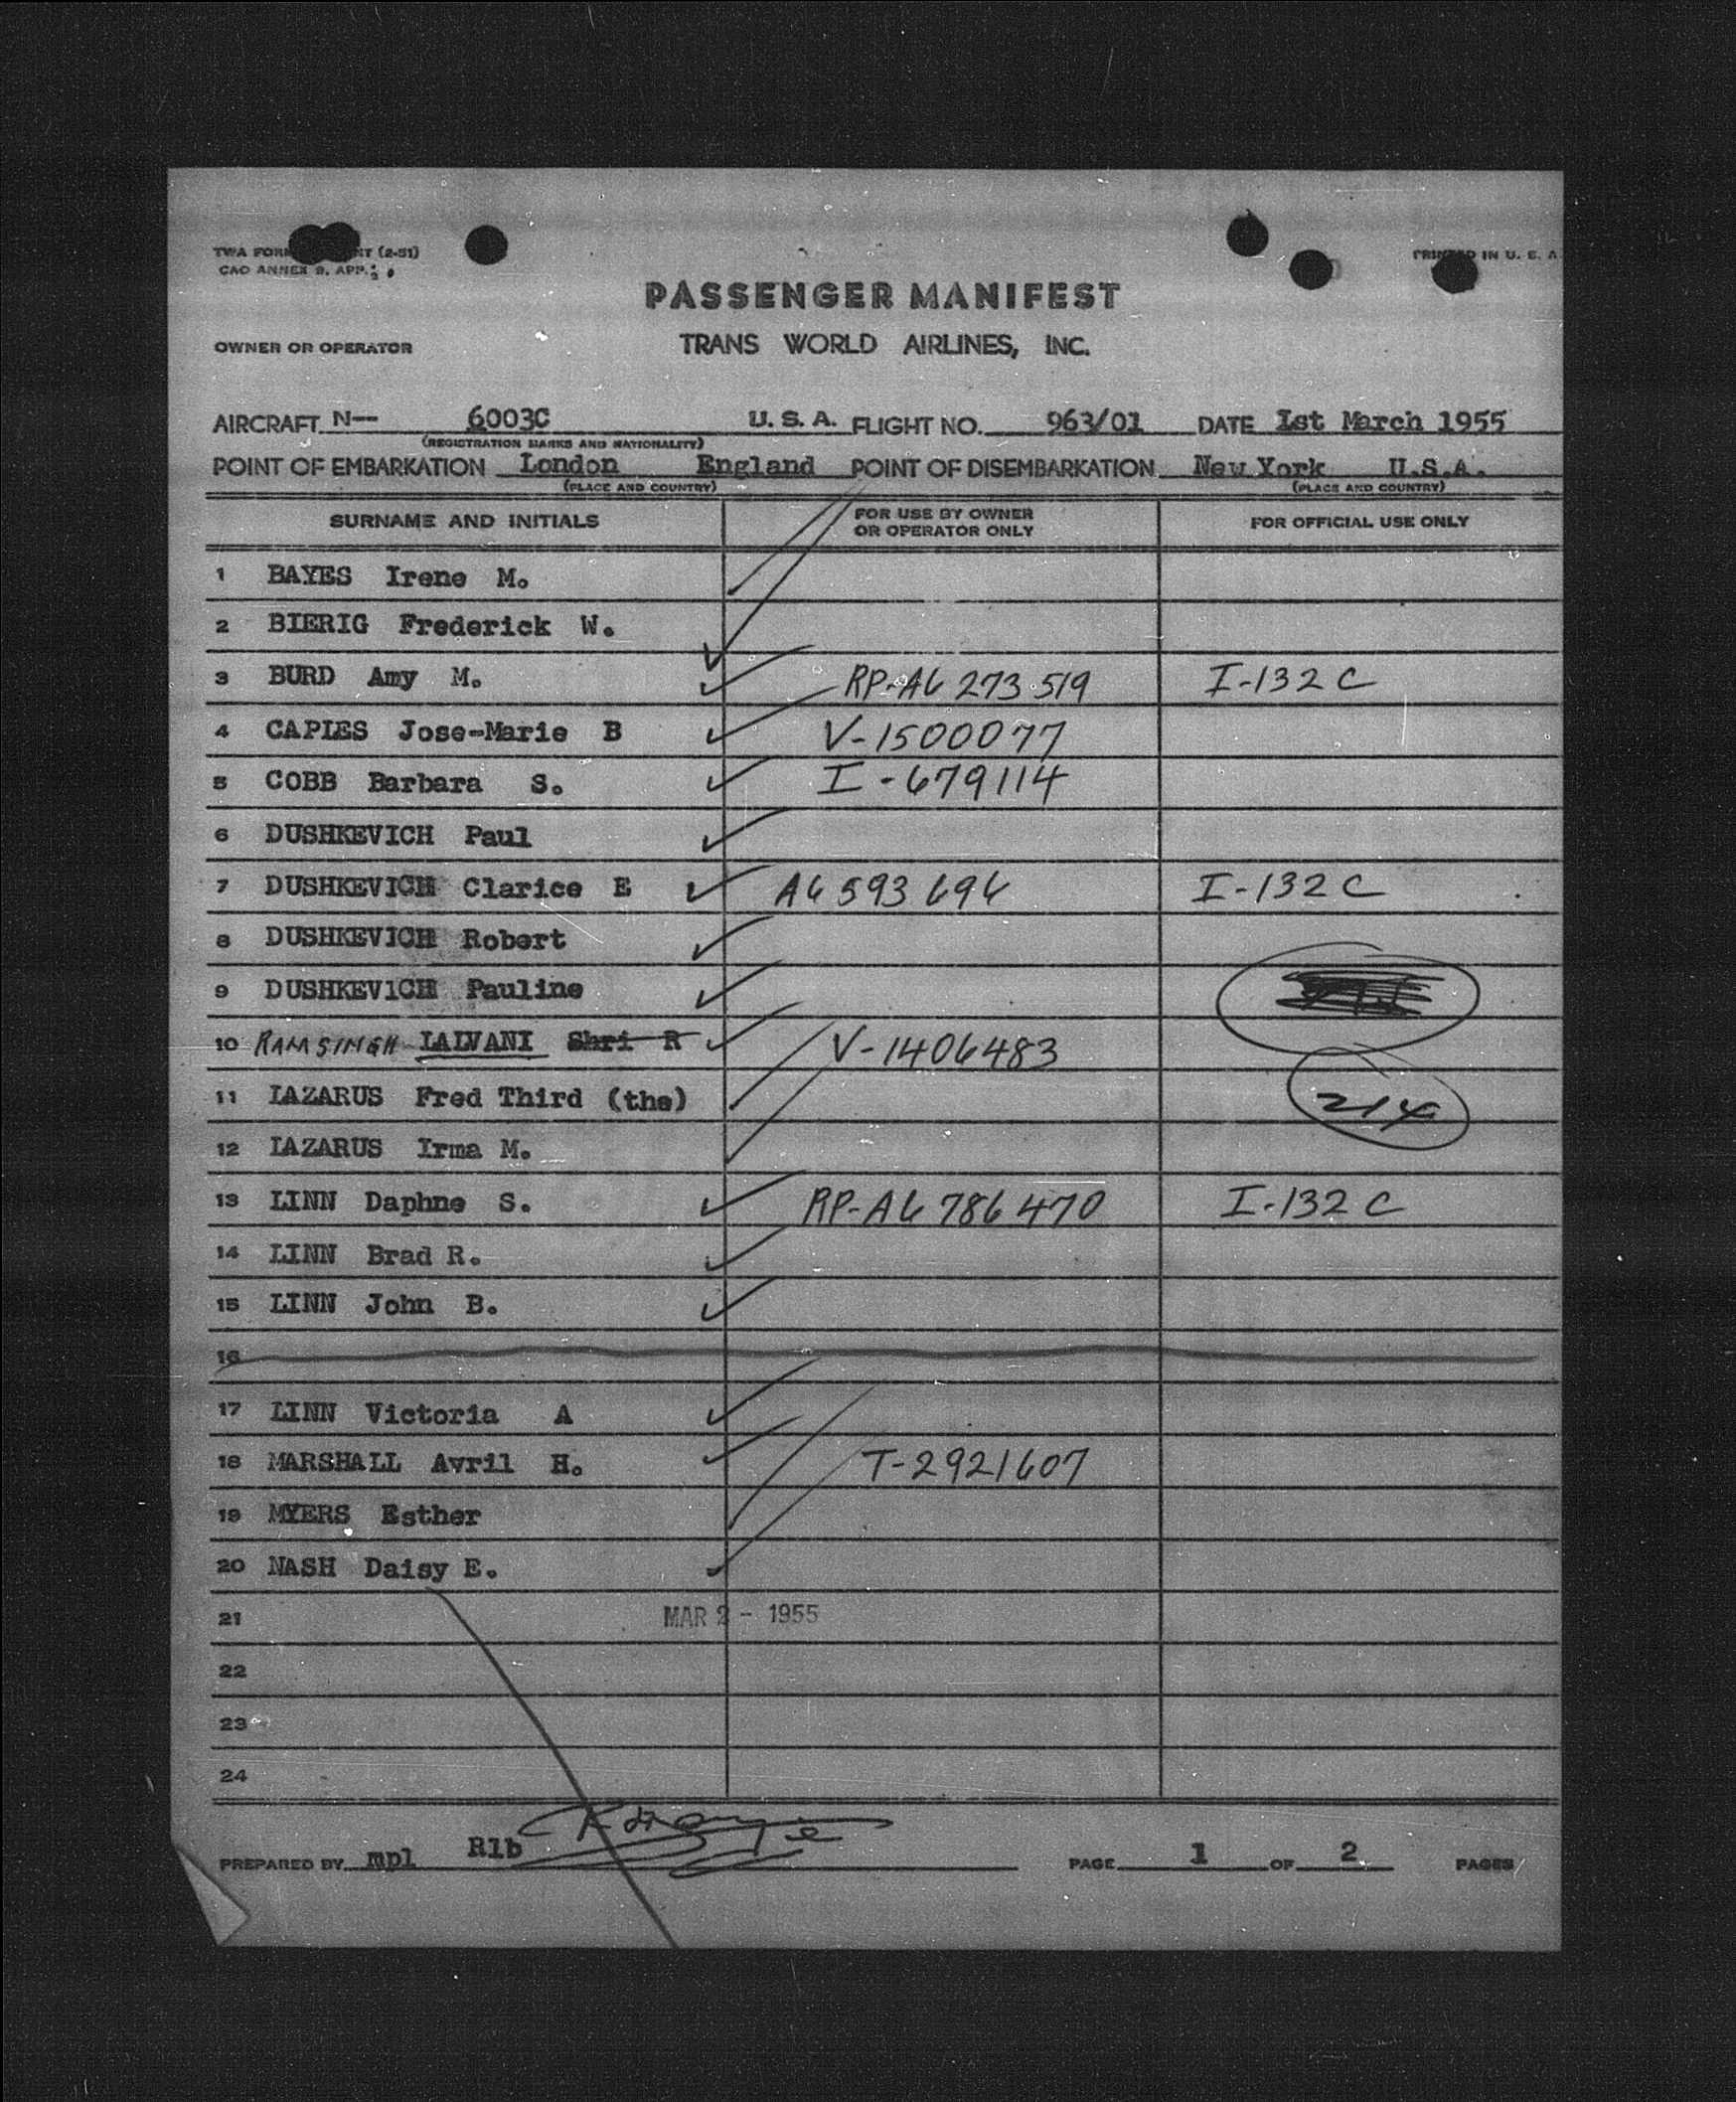 TWA FORM NT (2-51)
CAO ANNEX 9. APP.
PRINTED IN U. S. A
PASSENGER MANIFEST
OWNER OR OPERATOR TRANS WORLD AIRLINES, INC.
AIRCRAFT N-- 6003C U. S. A. FLIGHT NO. 963/01 DATE 1st March 1955
(REGISTRATION MARKS AND NATIONALITY)
POINT OF EMBARKATION London England POINT OF DISEMBARKATION New York U.S.A.
(PLACE AND COUNTRY) (PLACE AND COUNTRY)
SURNAME AND INITIALS FOR USE BY OWNER OR OPERATOR ONLY FOR OFFICIAL USE ONLY
1 BAYES Irene M.
2 BIERIG Frederick W.
3 BURD Amy M. RP-A6 273 519 I-132 C
4 CAPLES Jose-Marie B V-1500077
5 COBB Barbara S. I-679114
6 DUSHKEVICH Paul
7 DUSHKEVICH Clarice E A6 593 696 I-132 C
8 DUSHKEVICH Robert
9 DUSHKEVICH Pauline
10 RAMSINGH LALVANI Shri R V-1406483
11 LAZARUS Fred Third (the) 214
12 LAZARUS Irma M.
13 LINN Daphne S. RP-A6 786 470 I-132 C
14 LINN Brad R.
15 LINN John B.
16
17 LINN Victoria A
18 MARSHALL Avril H. T-2921607
19 MYERS Esther
20 NASH Daisy E.
21 MAR 2 - 1955
22
23
24
PREPARED BY mpl Rlb PAGE 1 OF 2 PAGES